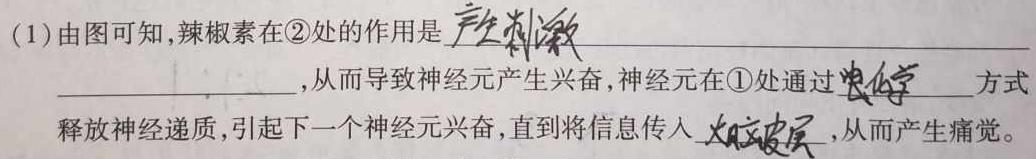 (1)由图可知,辣椒素在②处的作用是产生刺激
,从而导致神经元产生兴奋,神经元在①处通过电化学方式
释放神经递质,引起下一个神经元兴奋,直到将信息传入大脑皮层,从而产生痛觉。